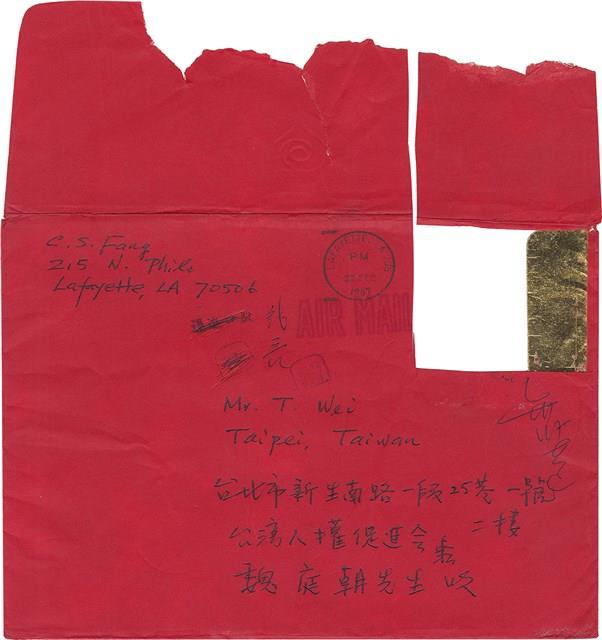 C. S. Fang
215 N. Philo
Lafayette, LA 70506
PM
1987
AIR MAIL
Mr. T. Wei
Taipei, Taiwan
台北市新生南路一段25巷一號
二樓
台湾人權促進会
魏庭朝先生收